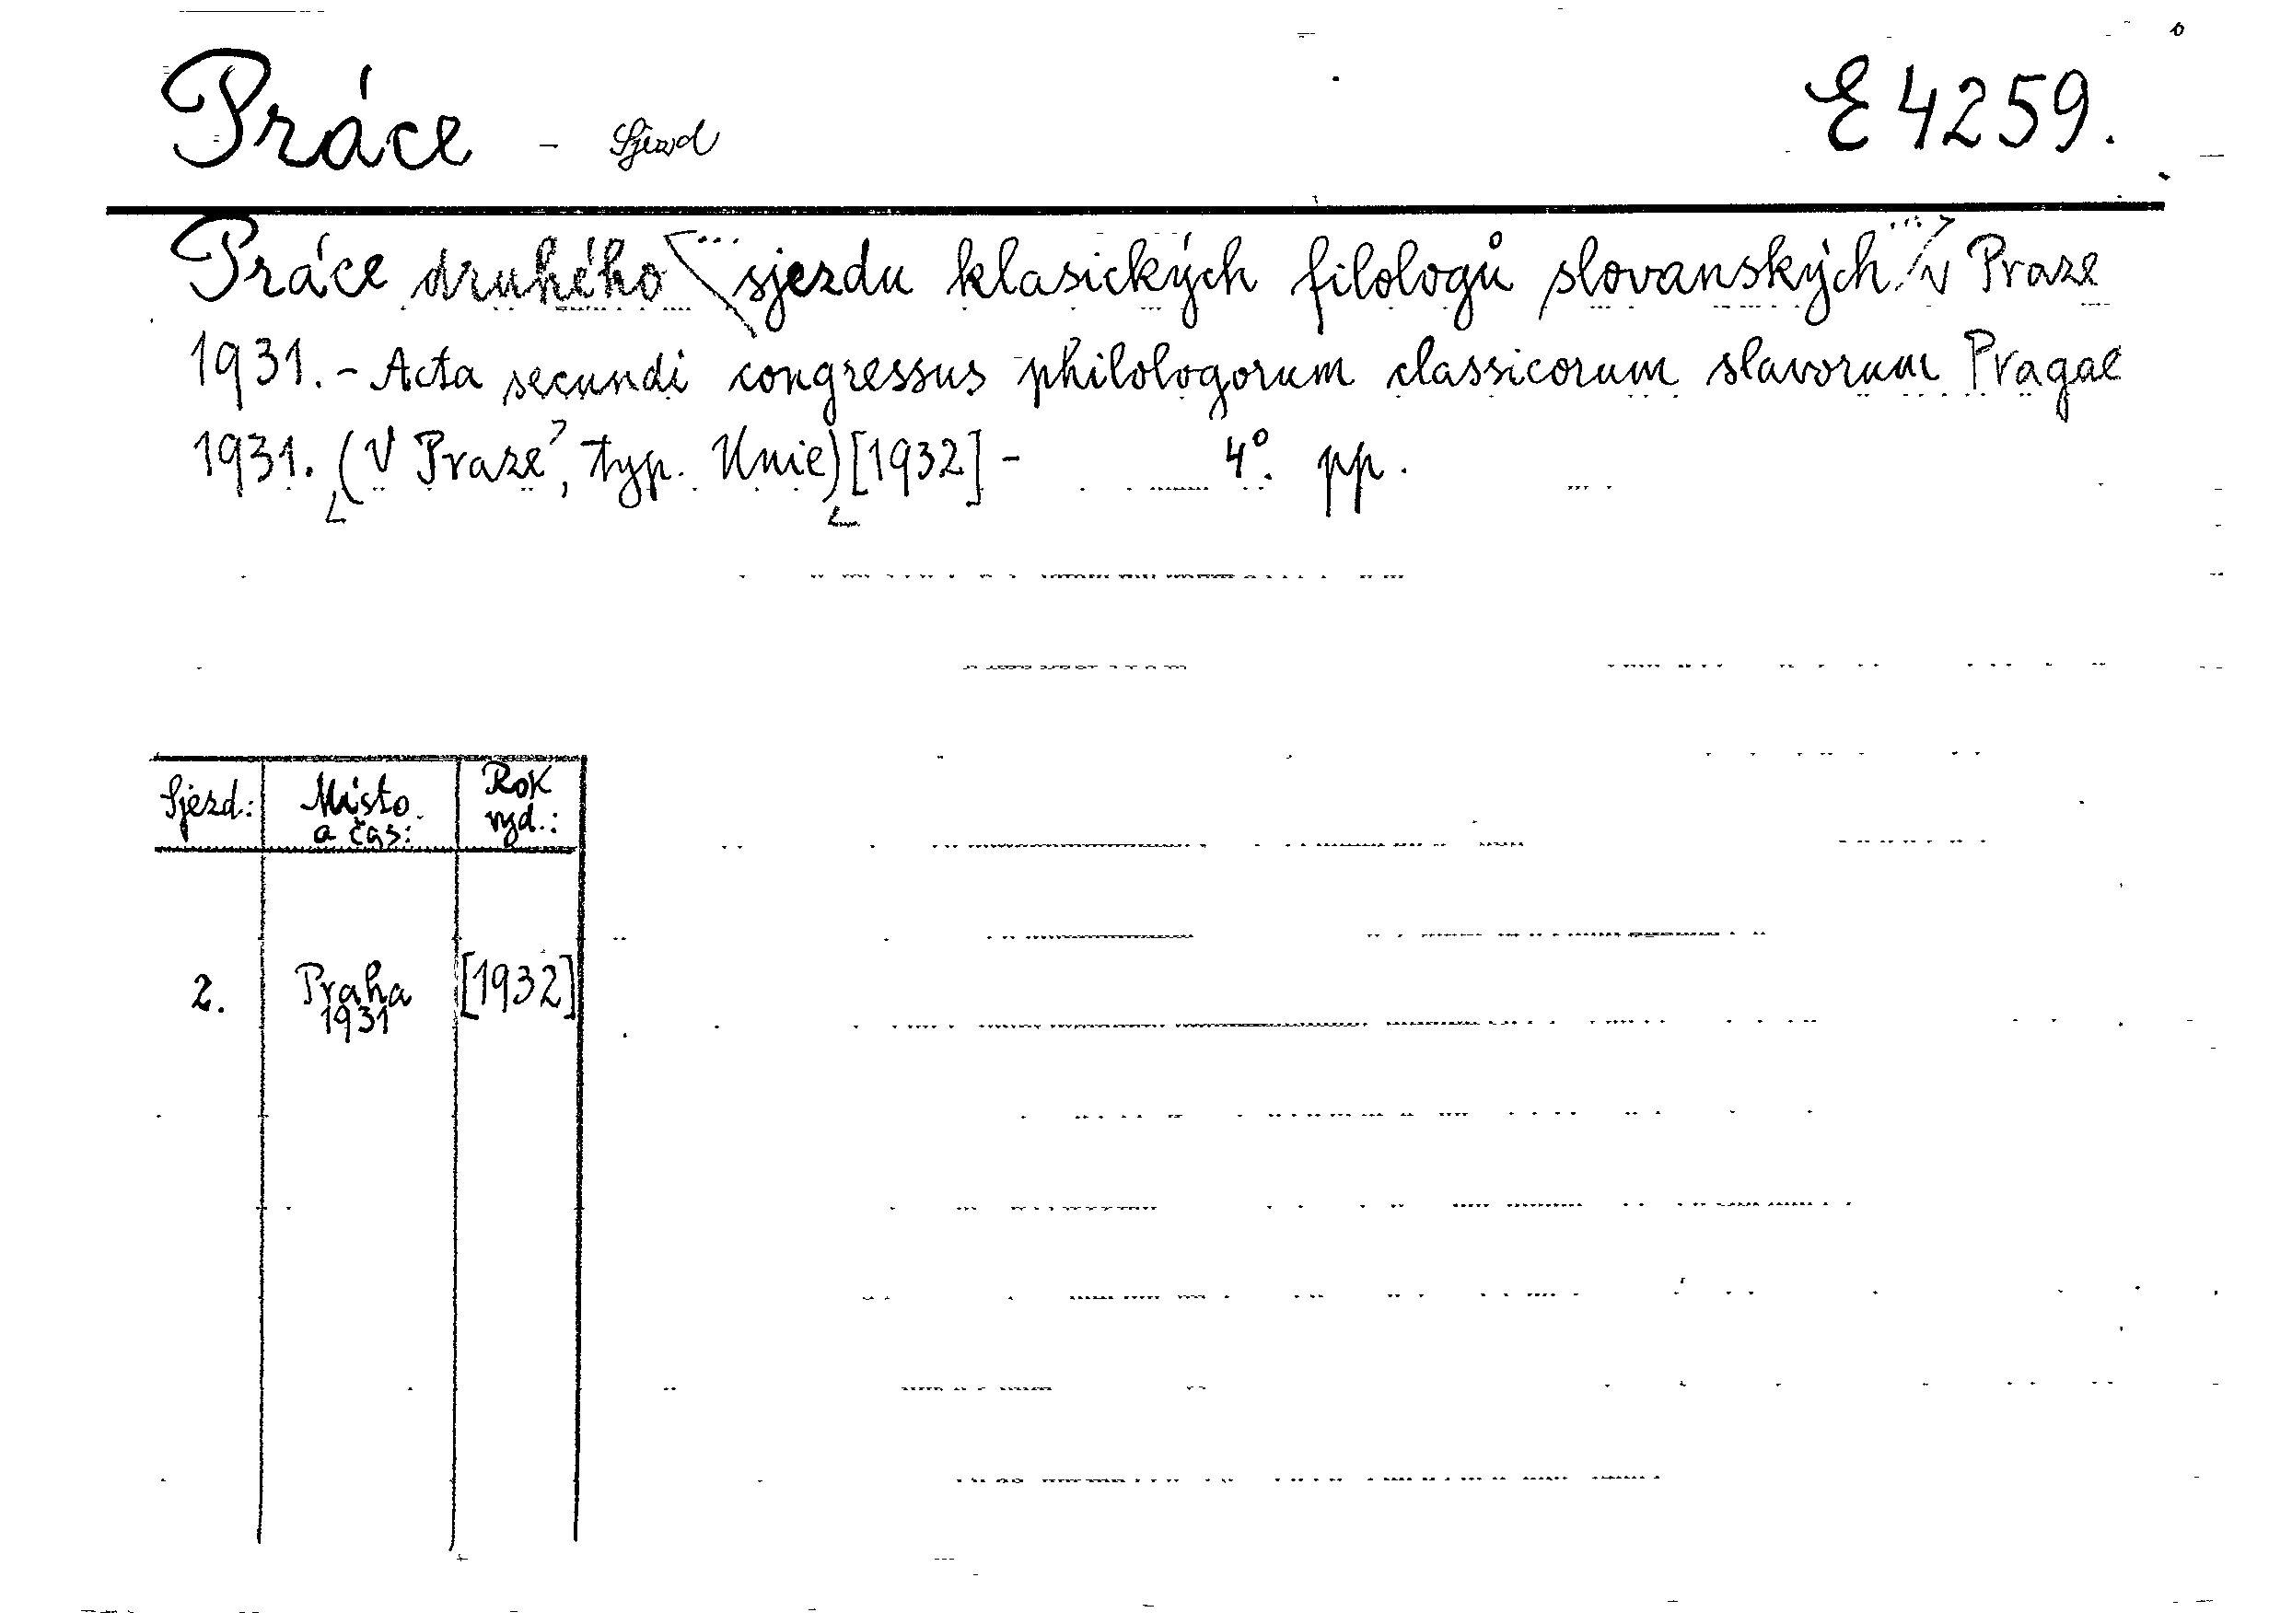 Práce - Sjezd E 4259.
Práce druhého sjezdu klasických filologů slovanských v Praze
1931. - Acta secundi congressus philologorum classicorum slavorum Pragae
1931. (V Praze, typ. Unie) [1932] - 4º. pp.
Sjezd: Místo a čas: Rok vyd.:
2. Praha 1931 [1932]